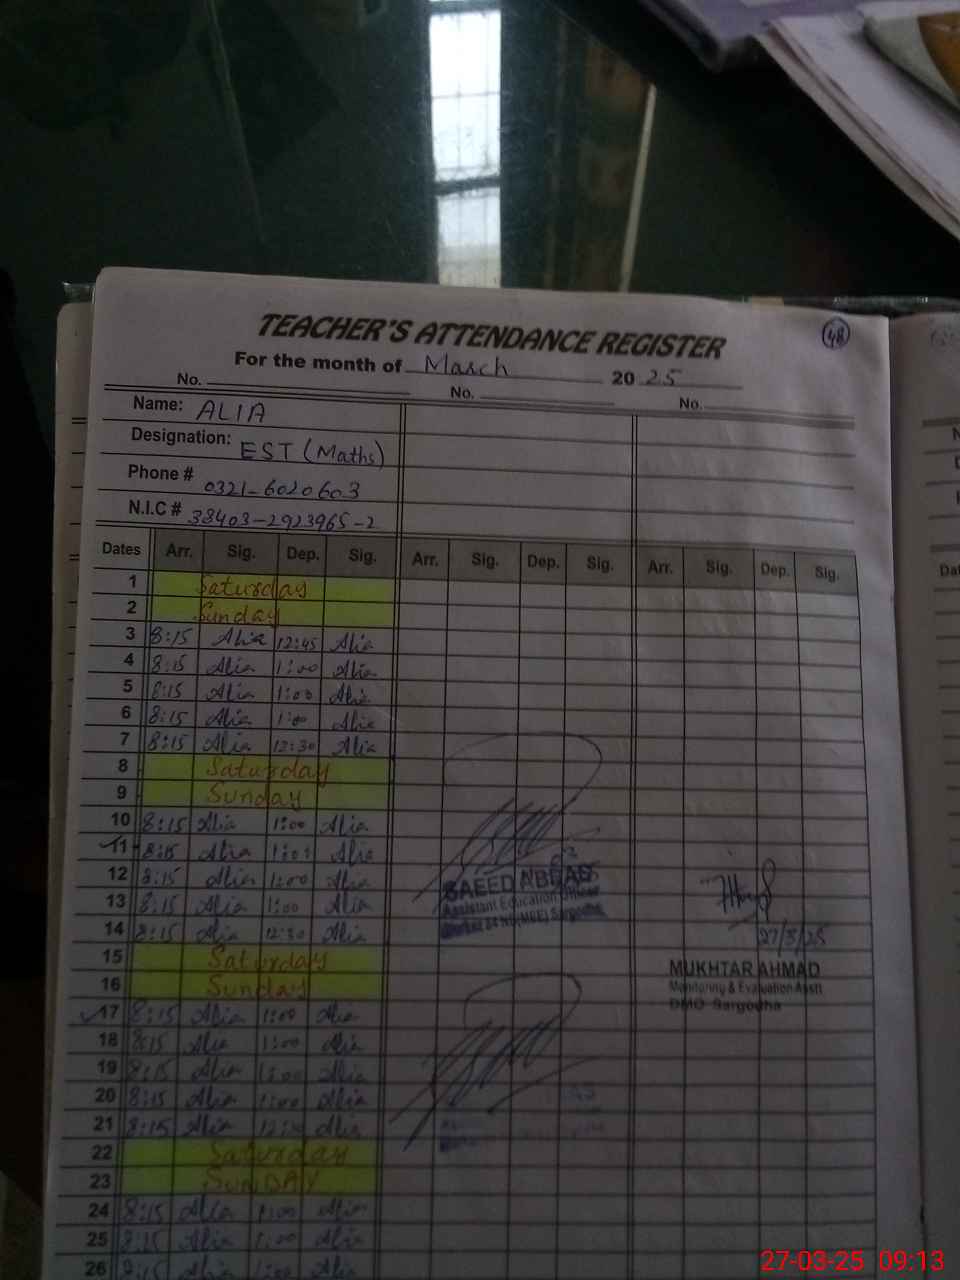 TEACHER'S ATTENDANCE REGISTER
48
For the month of March 2025
No. No. No.
Name: ALIA
Designation: EST (Maths)
Phone # 0321-6020603
N.I.C # 38403-2923965-2
Dates Arr. Sig. Dep. Sig. Arr. Sig. Dep. Sig. Arr. Sig. Dep. Sig.
1 Saturday
2 Sunday
3 8:15 Alia 12:45 Alia
4 8:15 Alia 1:00 Alia
5 8:15 Alia 1:00 Alia
6 8:15 Alia 1:00 Alia
7 8:15 Alia 12:30 Alia
8 Saturday
9 Sunday
10 8:15 Alia 1:00 Alia
11 8:15 Alia 1:00 Alia
12 8:15 Alia 1:00 Alia
13 8:15 Alia 1:00 Alia
14 8:15 Alia 12:30 Alia
SAEED ABBAS
Assistant Education Officer
Sargodha
27/3/25
MUKHTAR AHMAD
Monitoring & Evaluation Asstt
DMO Sargodha
15 Saturday
16 Sunday
17 8:15 Alia 1:00 Alia
18 8:15 Alia 1:00 Alia
19 8:15 Alia 1:00 Alia
20 8:15 Alia 1:00 Alia
21 8:15 Alia Alia
22 Saturday
23 SUNDAY
24 8:15 Alia 1:00 Alia
25 8:15 Alia 1:00 Alia
26 8:15 Alia 1:00 Alia
27-03-25 09:13